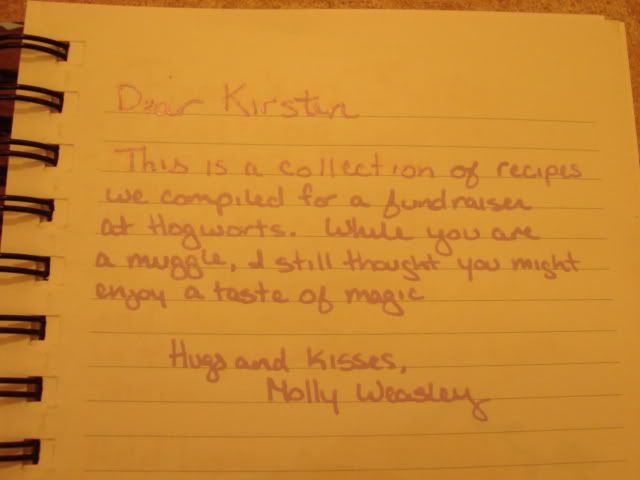 Dear Kirsten
This is a collection of recipes
we compiled for a fundraiser
at Hogwarts. While you are
a muggle, I still thought you might
enjoy a taste of magic
Hugs and Kisses,
Molly Weasley